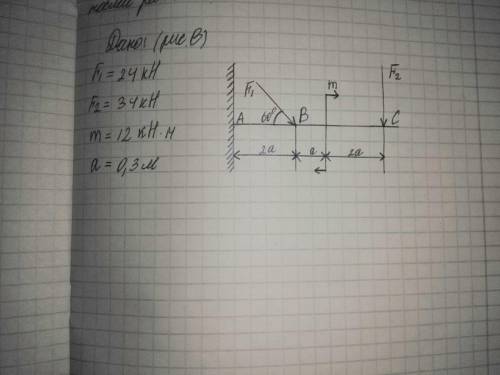 Дано: (рис В)
F₁ = 24 кН
F₂ = 34 кН
m = 12 кН·м
a = 0,3 м
F₁
m
F₂
A
60°
B
C
2a
a
2a